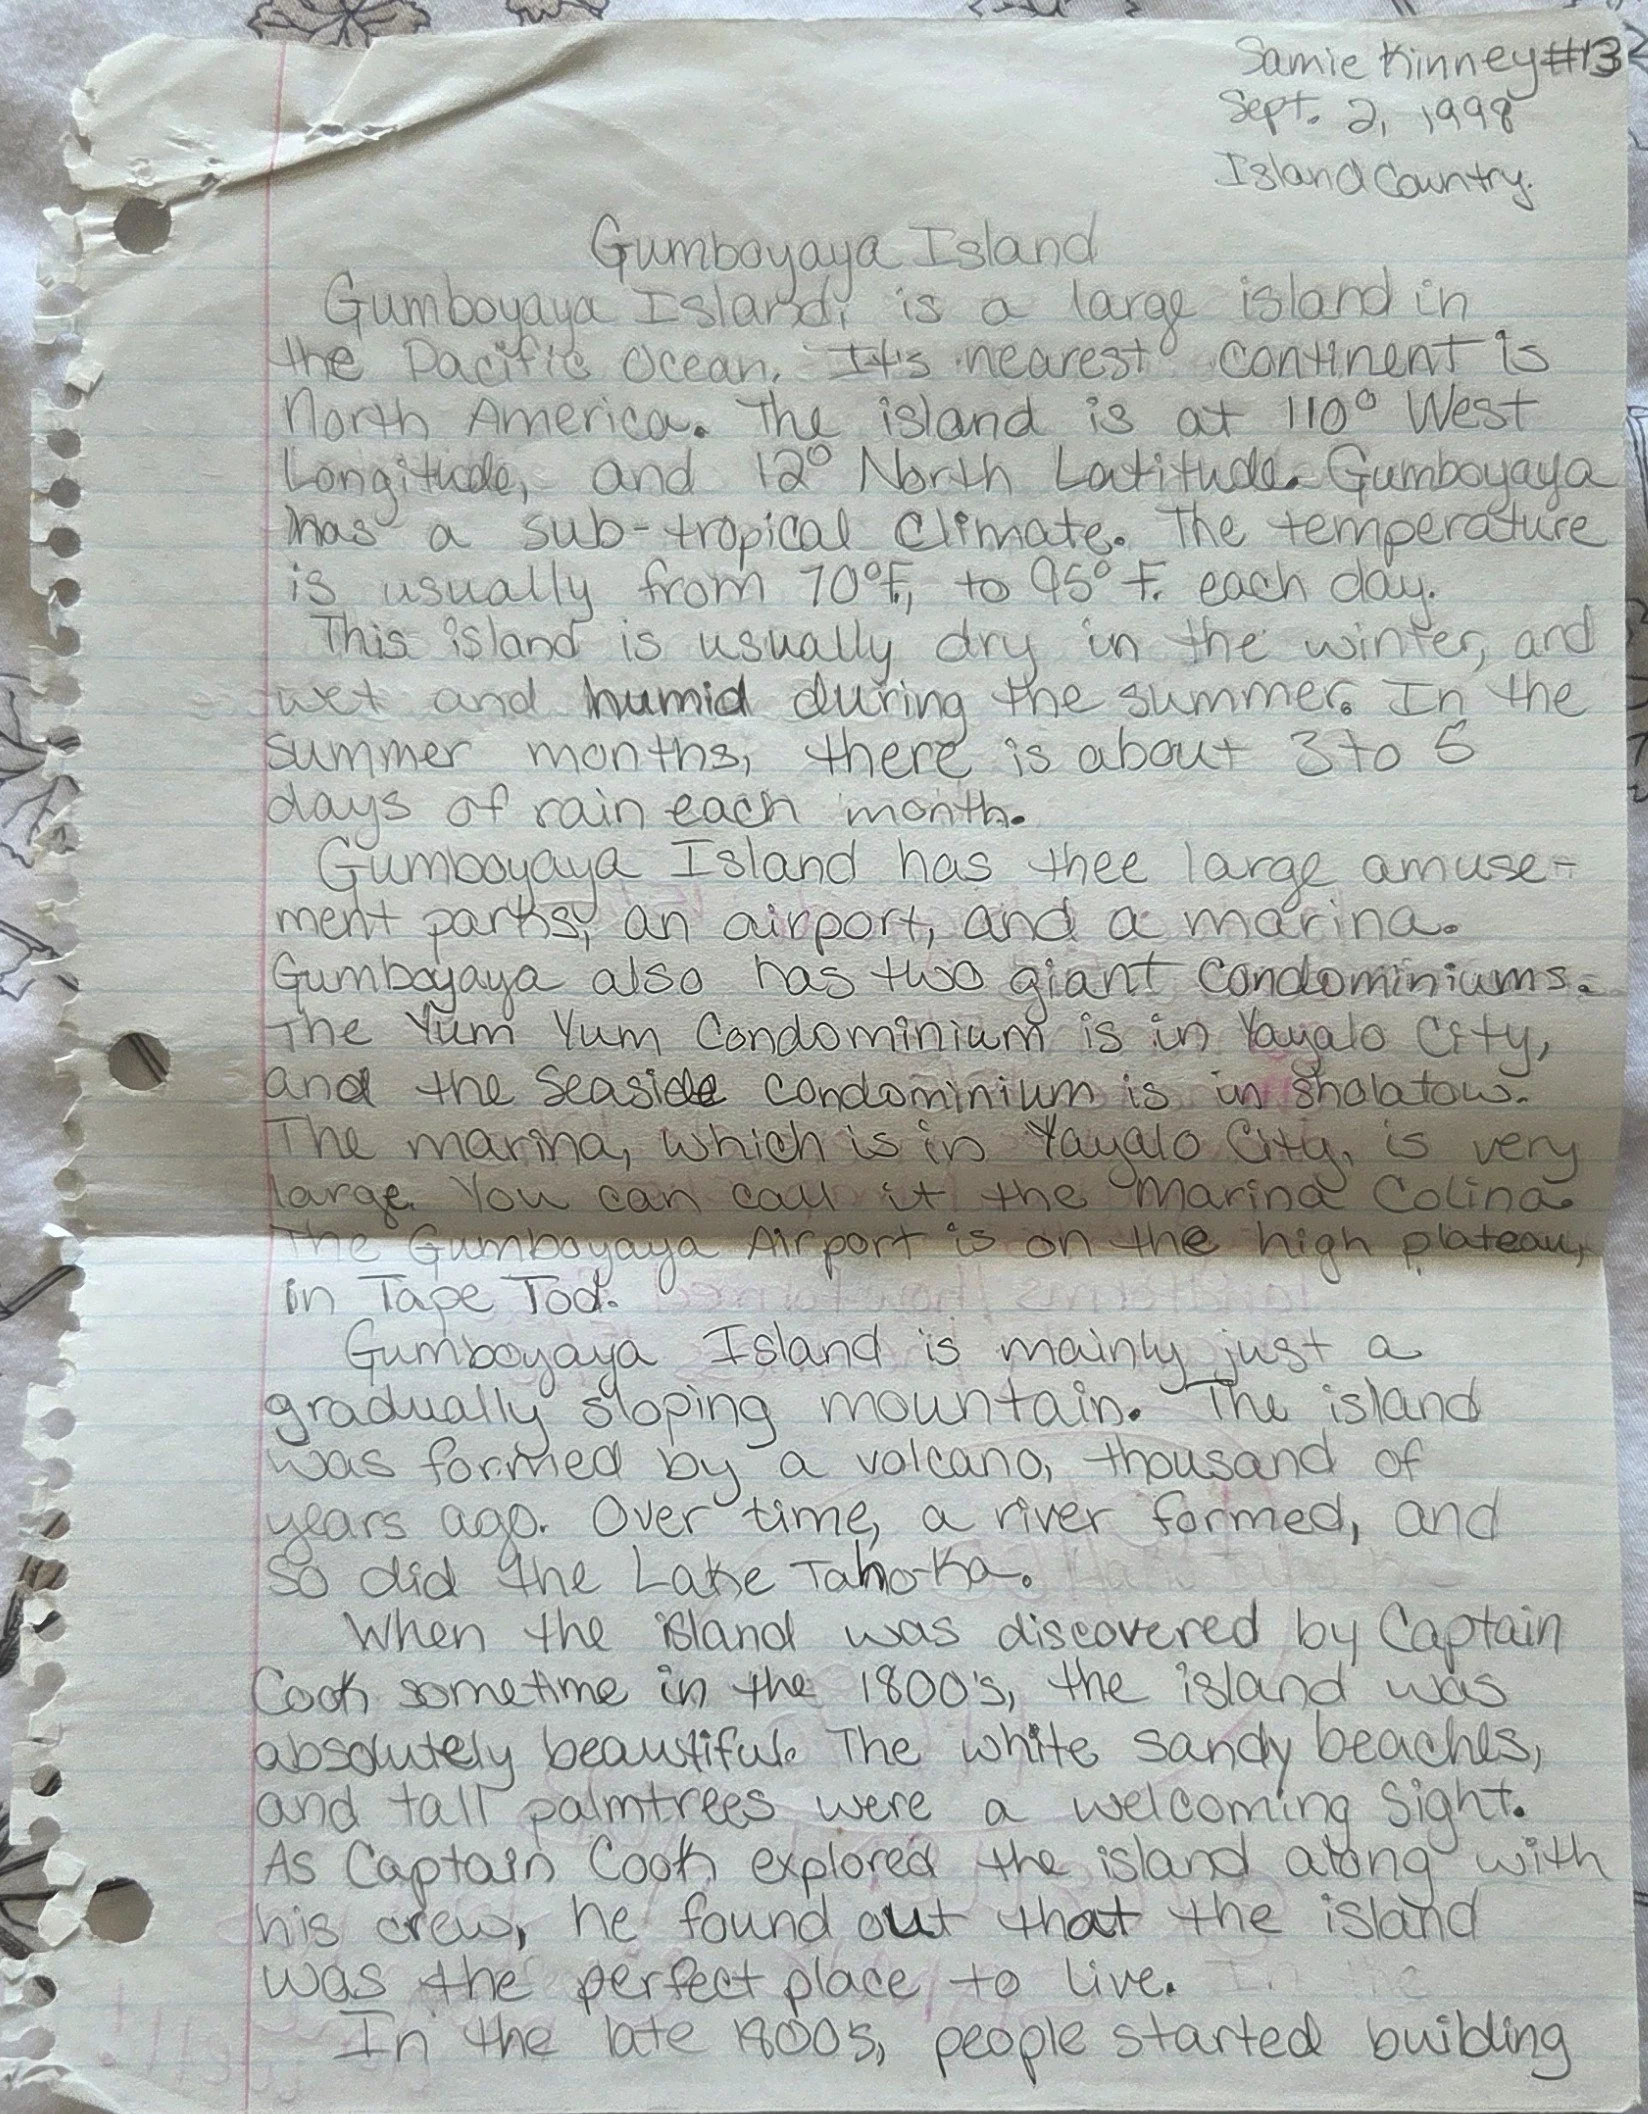 Samie Kinney #13
Sept. 2, 1998
Island Country.
Gumboyaya Island
Gumboyaya Island, is a large island in
the Pacific Ocean. It's nearest continent is
North America. The island is at 110° West
Longitude, and 12° North Latitude. Gumboyaya
has a sub-tropical climate. The temperature
is usually from 70°F, to 95° F. each day.
This island is usually dry in the winter, and
wet and humid during the summer. In the
summer months, there is about 3 to 5
days of rain each month.
Gumboyaya Island has thee large amuse-
ment parks, an airport, and a marina.
Gumboyaya also has two giant condominiums.
The Yum Yum Condominium is in Yayalo City,
and the Seaside Condominium is in Shalatow.
The marina, which is in Yayalo City, is very
large. You can call it the Marina Colina.
The Gumboyaya Airport is on the high plateau,
in Tape Tod.
Gumboyaya Island is mainly just a
gradually sloping mountain. The island
was formed by a volcano, thousand of
years ago. Over time, a river formed, and
so did the Lake Taho-Ka.
When the island was discovered by Captain
Cook sometime in the 1800's, the island was
absolutely beautiful. The white sandy beaches,
and tall palmtrees were a welcoming sight.
As Captain Cook explored the island along with
his crew, he found out that the island
was the perfect place to live.
In the late 1800s, people started building